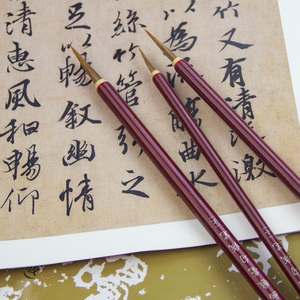 竹又有清流激
以為流觴曲水
絲竹管弦之
足以暢敘幽情
清惠風和暢仰